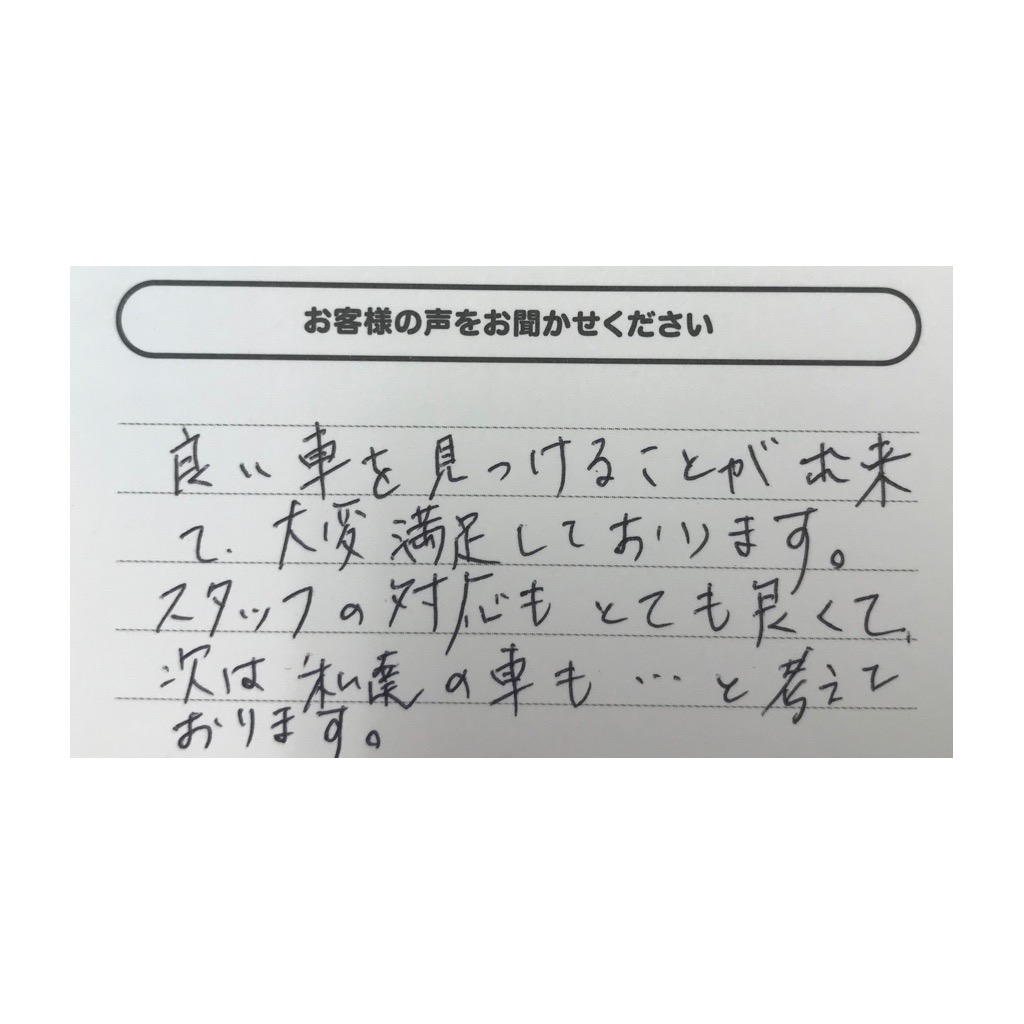 お客様の声をお聞かせください
良い車を見つけることが出来
て、大変満足しております。
スタッフの対応もとても良くて、
次は私達の車も…と考えて
おります。